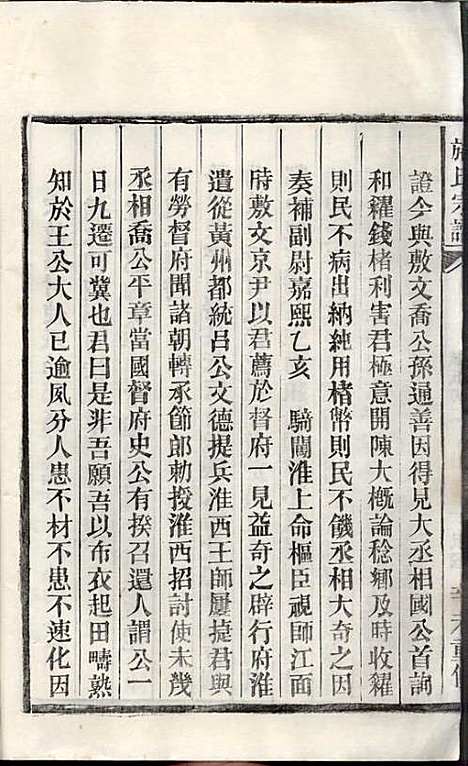 氏宗譜
證今與敷文喬公孫通善因得見大丞相國公首詢
和糴錢楮利害君極意開陳大槪論稔鄉及時收糴
則民不病出納純用楮幣則民不饑丞相大奇之因
奏補副尉嘉熙乙亥 騎闖淮上命樞臣視師江面
時敷文京尹以君薦於督府一見益奇之辟行府淮
遣從黃州都統呂公文德提兵淮西王師屢捷君與
有勞督府聞諸朝轉承節郎勅授淮西招討使未幾
丞相喬公平章當國督府史公有揆召還人謂公一
日九遷可冀也君曰是非吾願吾以布衣起田疇熟
知於王公大人已逾夙分人患不材不患不速化因